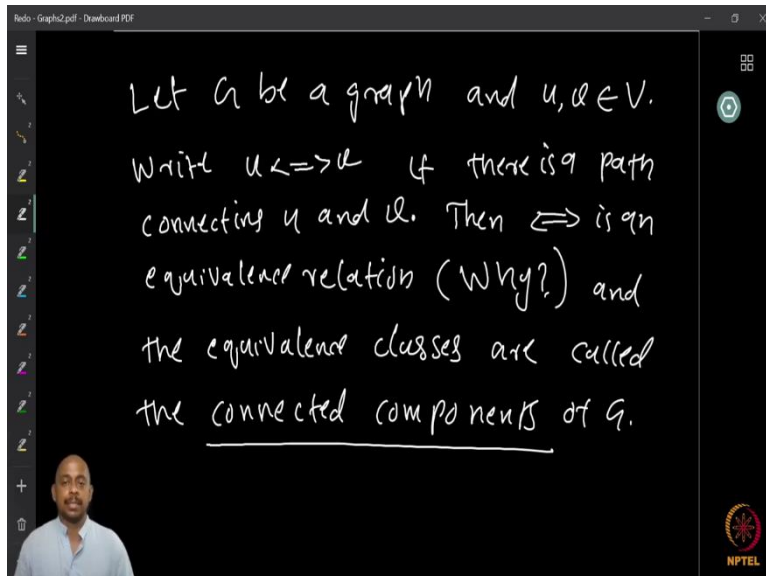 Redo - Graphs2.pdf - Drawboard PDF
Let G be a graph and u, v ∈ V.
Write u <=> v if there is a path
connecting u and v. Then <=> is an
equivalence relation (Why?) and
the equivalence classes are called
the connected components of G.
NPTEL